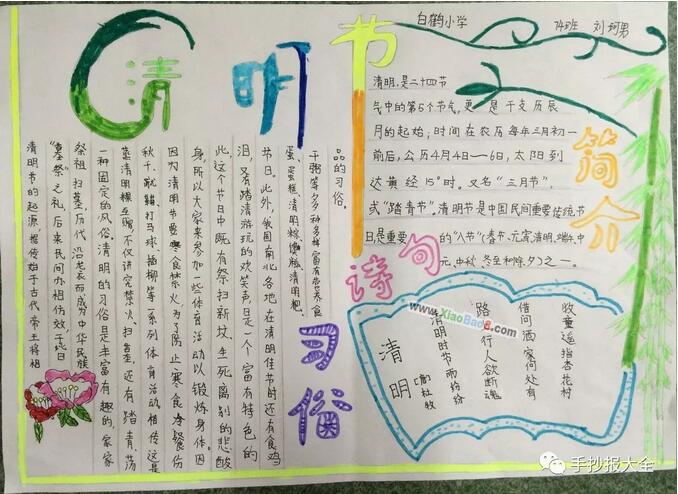 清明节
简介
白鹤小学 74班 刘珂男
清明,是二十四节
气中的第5个节气,更是干支历辰
月的起始;时间在农历每年三月初一
前后,公历4月4日—6日,太阳到
达黄经15°时。又名“三月节”,
或“踏青节”。清明节是中国民间重要传统节
日,是重要的“八节”(春节、元宵、清明、端午、中
元、中秋、冬至和除夕)之一。
习俗
清明节的起源 据传始于古代帝王将相
“墓祭”之礼,后来民间亦相仿效,于此日
祭祖扫墓,历代沿袭而成为中华民族
一种固定的风俗。清明的习俗是丰富有趣的,家家
蒸清明粿互赠,不仅讲究禁火、扫墓,还有踏青、荡
秋千、蹴鞠、打马球、插柳等一系列体育活动。相传这是
因为清明节要寒食禁火,为了防止寒食冷餐伤
身,所以大家来参加一些体育活动以锻炼身体。因
此,这个节日中既有祭扫新坟,生死离别的悲酸
泪,又有踏清游玩的欢笑声,是一个富有特色的
节日。此外,我国南北各地在清明佳节时还有食鸡
蛋、蛋糕、清明粽、清明粑、
干粥等多种多样富有营养食
品的习俗。
诗句
清明
(唐)杜牧
清明时节雨纷纷
路上行人欲断魂
借问酒家何处有
牧童遥指杏花村
www.XiaoBaoB.com
手抄报大全